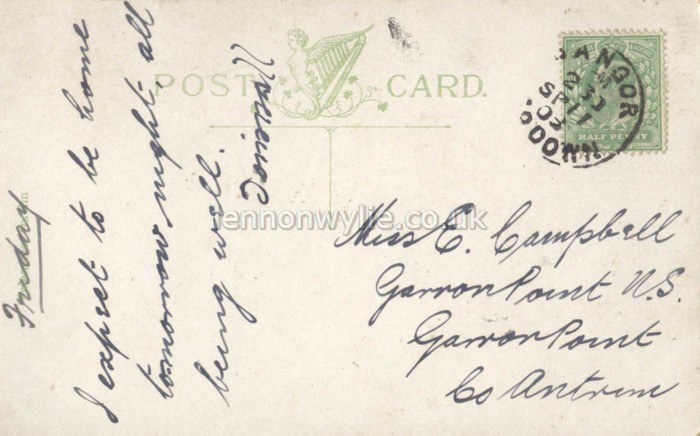 POST CARD.
BANGOR
SP 11
03
CO. DOWN
HALF PENNY
Friday
I expect to be home
tomorrow night, all
being well.
lennonwylie.co.uk
Miss E. Campbell
Garron Point N.S.
Garron Point
Co Antrim